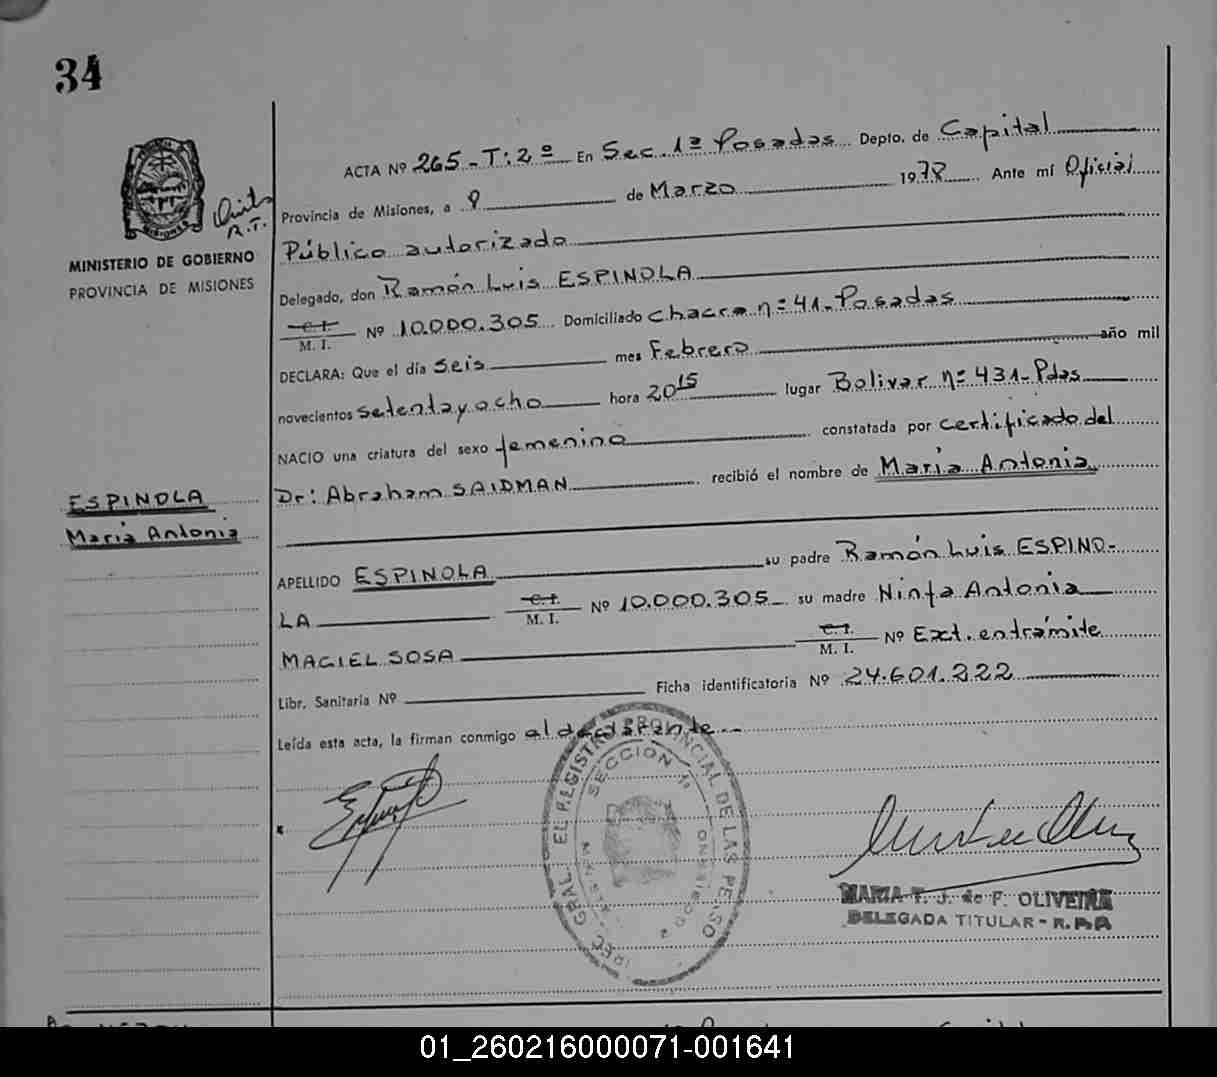 34
ACTA Nº 265-T:2º En Sec. 1ª Posadas Depto. de Capital
Provincia de Misiones, a 8 de Marzo 1978 Ante mí Oficial
R.T.
Público autorizado
MINISTERIO DE GOBIERNO
PROVINCIA DE MISIONES
Delegado, don Ramón Luis ESPINOLA
C. I.
M. I. Nº 10.000.305 Domiciliado chacra nº 41-Posadas
DECLARA: Que el día seis mes Febrero año mil
novecientos setentayocho hora 20 15 lugar Bolivar nº 431-Pdas
NACIO una criatura del sexo femenino constatada por certificado del
Dr: Abraham SAIDMAN recibió el nombre de Maria Antonia
ESPINOLA
Maria Antonia
APELLIDO ESPINOLA su padre Ramón Luis ESPINO-
LA C. I. M. I. Nº 10.000.305 su madre Ninfa Antonia
MACIEL SOSA C. I. M. I. Nº Ext. entrámite
Libr. Sanitaria Nº Ficha identificatoria Nº 24.601.222
Leída esta acta, la firman conmigo el declarante
REGISTRO PROVINCIAL DE LAS PERSO
SECCION 1ª
MARIA F. J. de F. OLIVEIRA
DELEGADA TITULAR - R.P.P
01_260216000071-001641